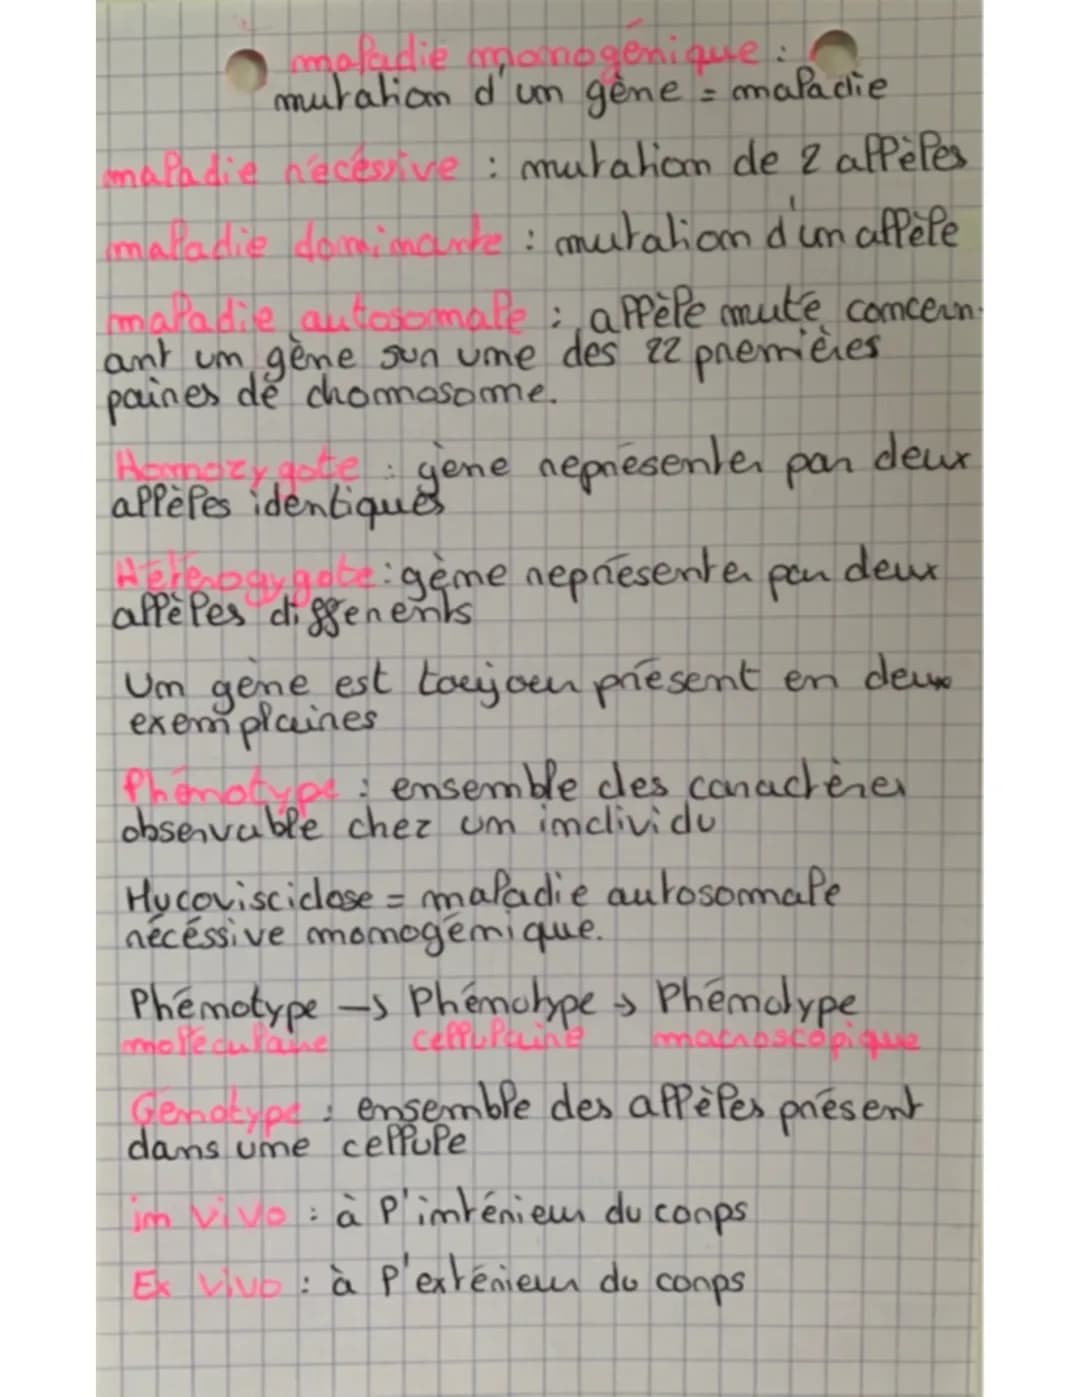 maladie monogénique :
mutation d'un gène = maladie
maladie récéssive : mutation de 2 allèles
maladie dominante : mutation d'un allèle
maladie autosomale : allèle muté concern-
ant un gène sur une des 22 premières
paires de chomosome.
Homozygote : gène représenter par deux
allèles identiques
Hétérogygote : gème représenter par deux
allèles différents
Un gène est toujour présent en deux
exemplaires
Phénotype : ensemble des caractères
observable chez un individu
Mucoviscidose = maladie autosomale
récéssive monogénique.
Phénotype → Phénotype → Phénotype
moléculaire cellulaire macroscopique
Génotype : ensemble des allèles présent
dans une cellule
in vivo : à l'intérieur du corps
Ex vivo : à l'extérieur du corps